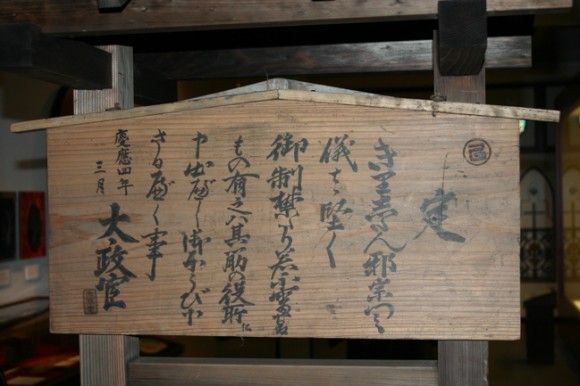 定
きりしたん邪宗門之
儀は堅く
御制禁たり若不審なる
もの有之ハ其筋の役所に
申出べし御ほうび下
さるべく事
慶應四年
三月
太政官